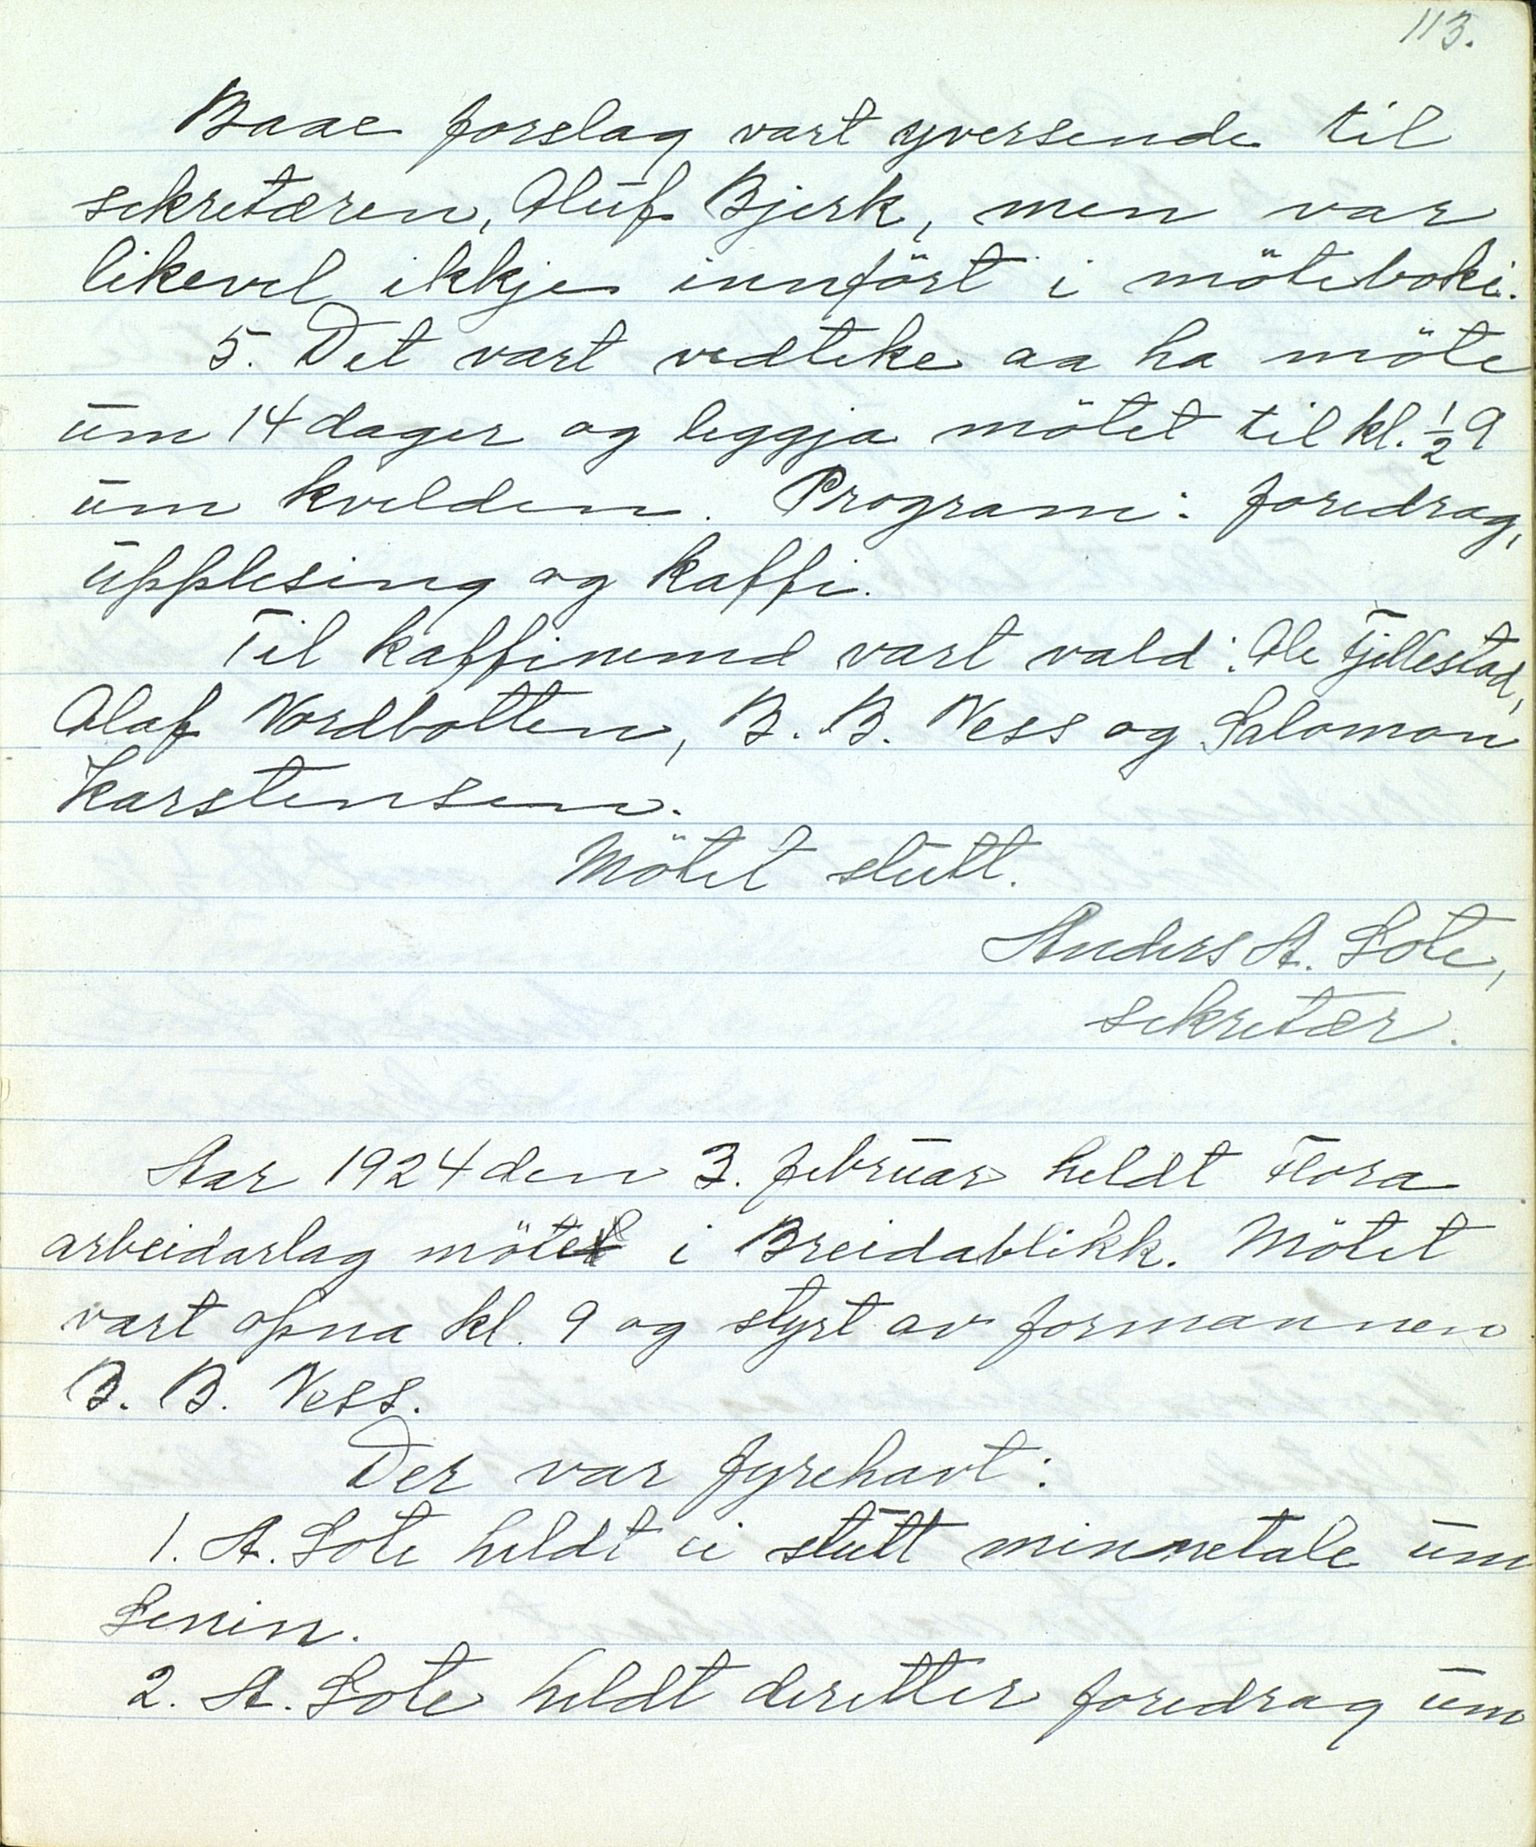 113.
Baae forslag vart yversende til
sekretæren, Oluf Bjerk, men var
likevel ikkje innfört i möteboki.
5. Det vart vedteke aa ha möte
um 14 dager og leggja mötet til kl. ½ 9
um kvelden. Program: foredrag,
upplesing og kaffi.
Til kaffinemd vart vald: Ole Fjellestad,
Olaf Nordbotten, B. B. Ness og Salomon
Karstensen.
Mötet slutt.
Anders A. Lote,
sekretær.
Aar 1924 den 3. februar heldt Flora
arbeidarlag möte i Breidablikk. Mötet
vart opna kl. 9 og styrt av formannen
B. B. Ness.
Der var fyrehavt:
1. A. Lote heldt ei stutt minnetale um
Lenin.
2. A. Lote heldt deretter foredrag um